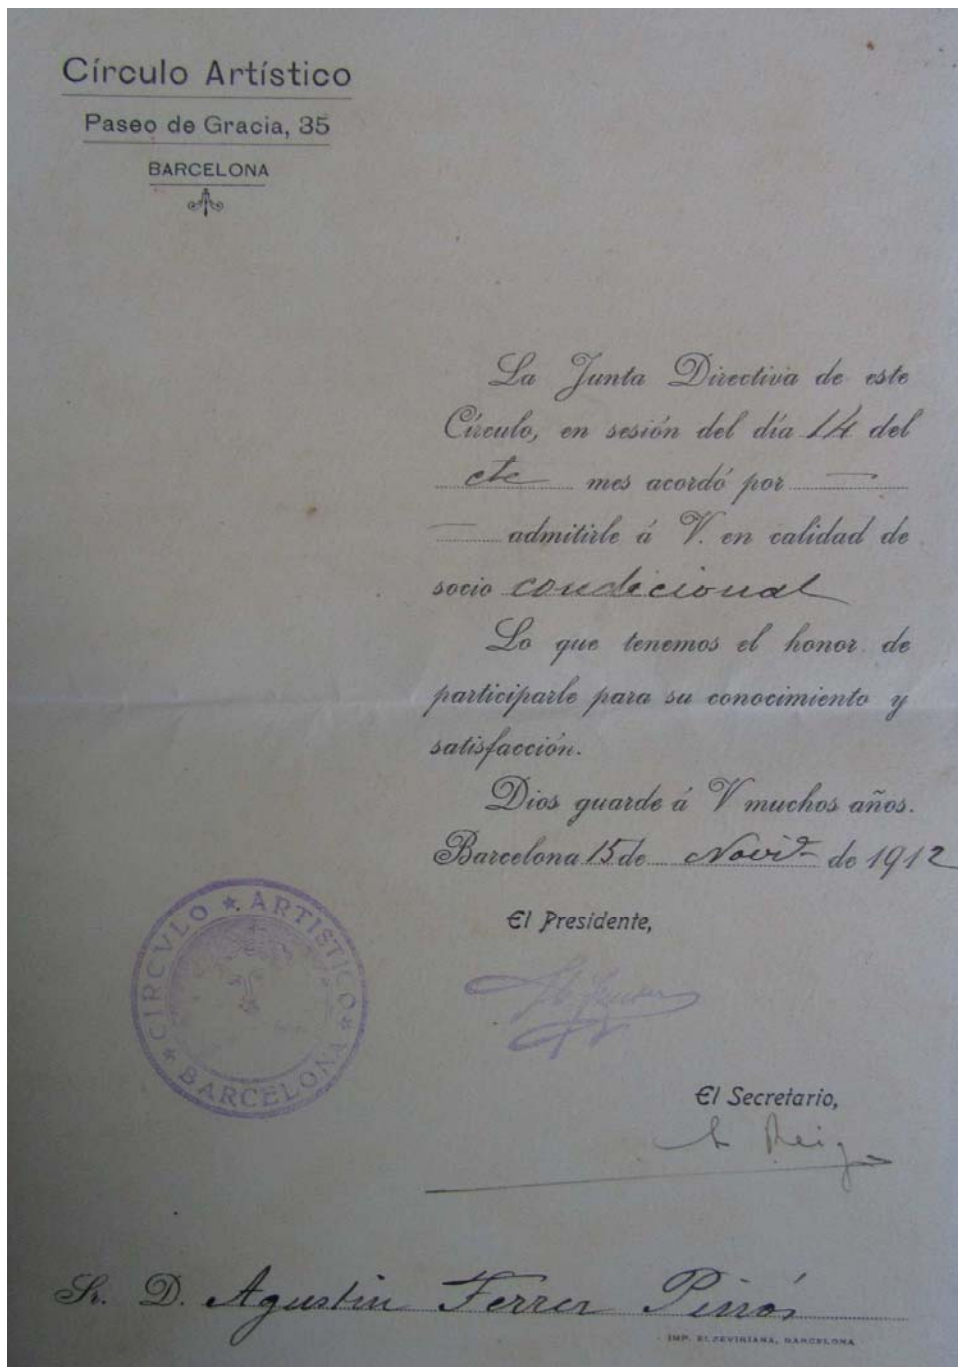 Círculo Artístico
Paseo de Gracia, 35
BARCELONA
La Junta Directiva de este
Círculo, en sesión del día 14 del
cte mes acordó por
admitirle á V. en calidad de
socio condicional
Lo que tenemos el honor de
participarle para su conocimiento y
satisfacción.
Dios guarde á V muchos años.
Barcelona 15 de Novbe de 1912
El Presidente,
CIRCVLO ★ ARTISTICO ★ BARCELONA ★
El Secretario,
Reig
Sr. D. Agustin Ferrer Pinós
IMP. ELZEVIRIANA, BARCELONA